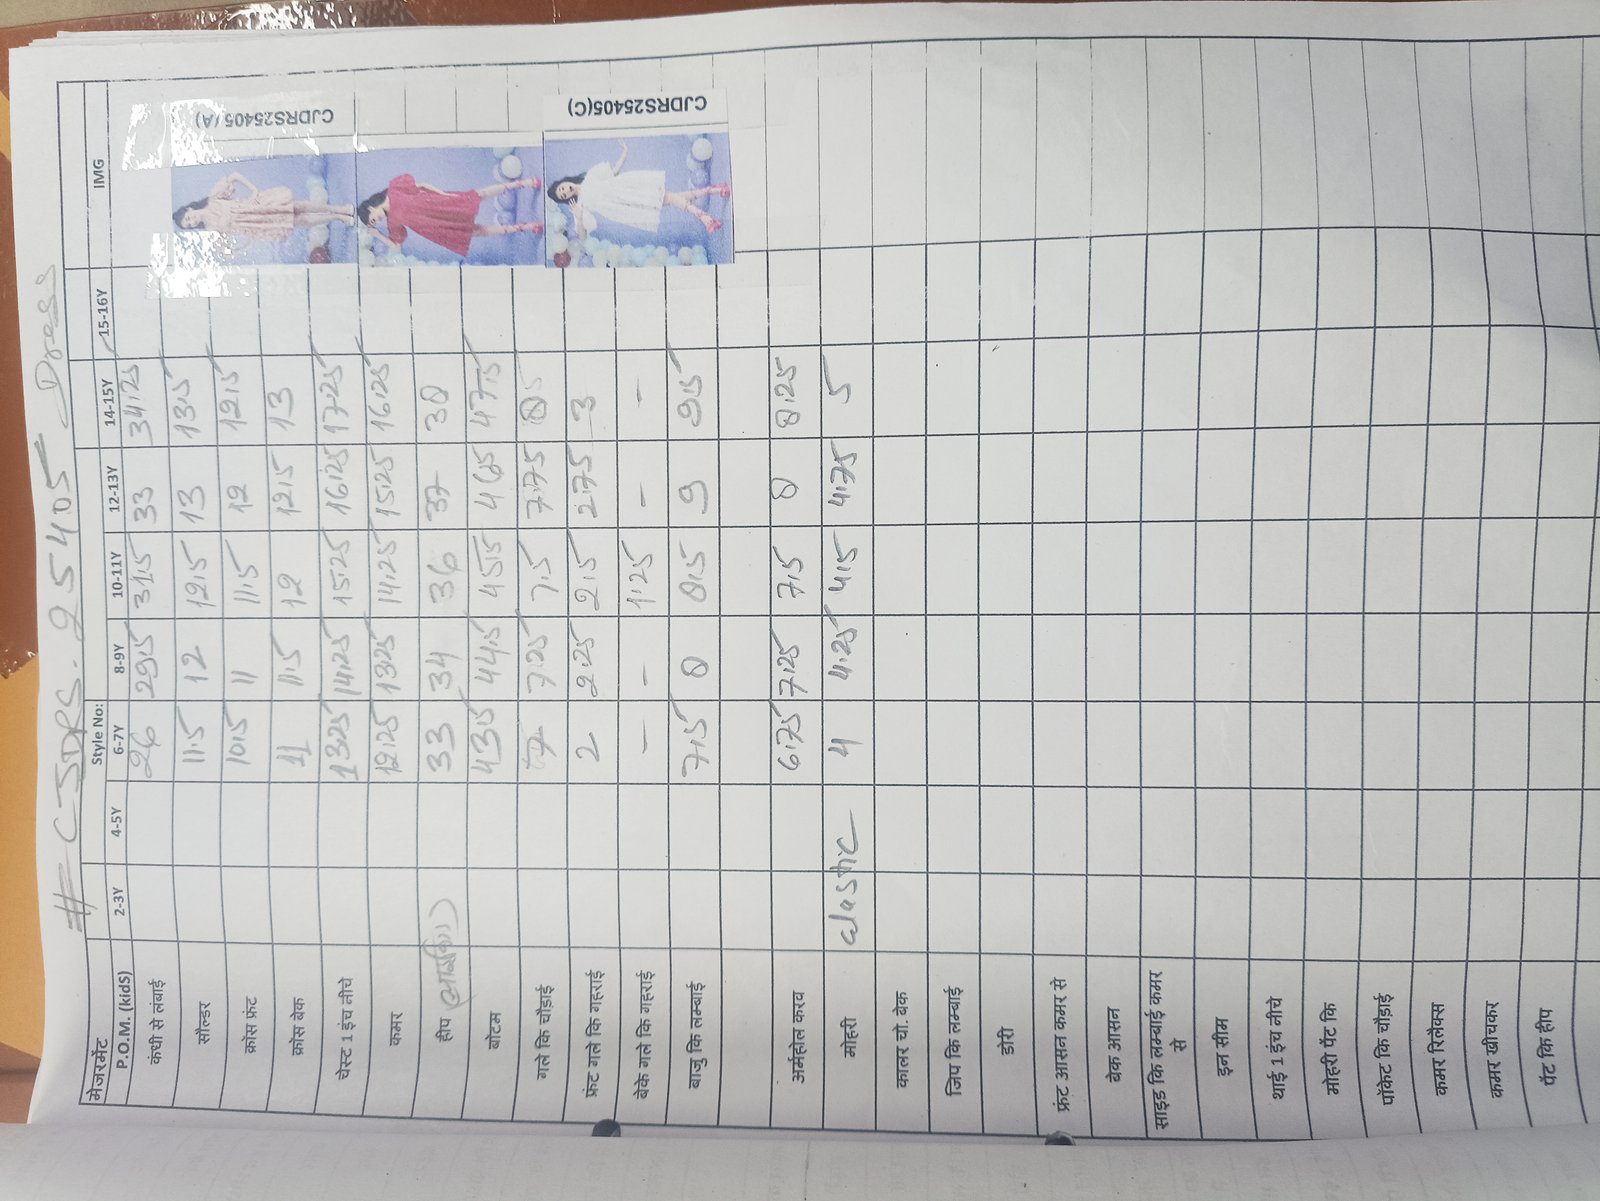 # CJDRS. 25405 Dress
मेजरमेंट Style No: IMG
P.O.M. (kidS) 2-3Y 4-5Y 6-7Y 8-9Y 10-11Y 12-13Y 14-15Y 15-16Y
कंधी से लंबाई 26 29.5 31.5 33 34.25
सौल्डर 11.5 12 12.5 13 13.5
क्रोस फ्रंट 10.5 11 11.5 12 12.5
क्रोस बेक 11 11.5 12 12.5 13
चेस्ट 1 इंच नीचे 13.25 14.25 15.25 16.25 17.25
कमर 12.25 13.25 14.25 15.25 16.25
हीप 33 34 36 37 38
बोटम 43.5 44.5 45.5 46.5 47.5
गले कि चौड़ाई 7 7.25 7.5 7.75 8.5
फ्रंट गले कि गहराई 2 2.25 2.5 2.75 3
बेके गले कि गहराई - - 1.25 - -
बाजु कि लम्बाई 7.5 8 8.5 9 9.5
अर्महोल करव 6.75 7.25 7.5 8 8.25
मोहरी elastic 4 4.25 4.5 4.75 5
कालर चो. बेक
जिप कि लम्बाई
डोरी
फ्रंट आसन कमर से
बेक आसन
साइड कि लम्बाई कमर
से
इन सीम
थाई 1 इंच नीचे
मोहरी पेंट कि
पॉकेट कि चौड़ाई
कमर रिलैक्स
कमर खीचकर
पेंट कि हीप
CJDRS25405 (A)
CJDRS25405(C)